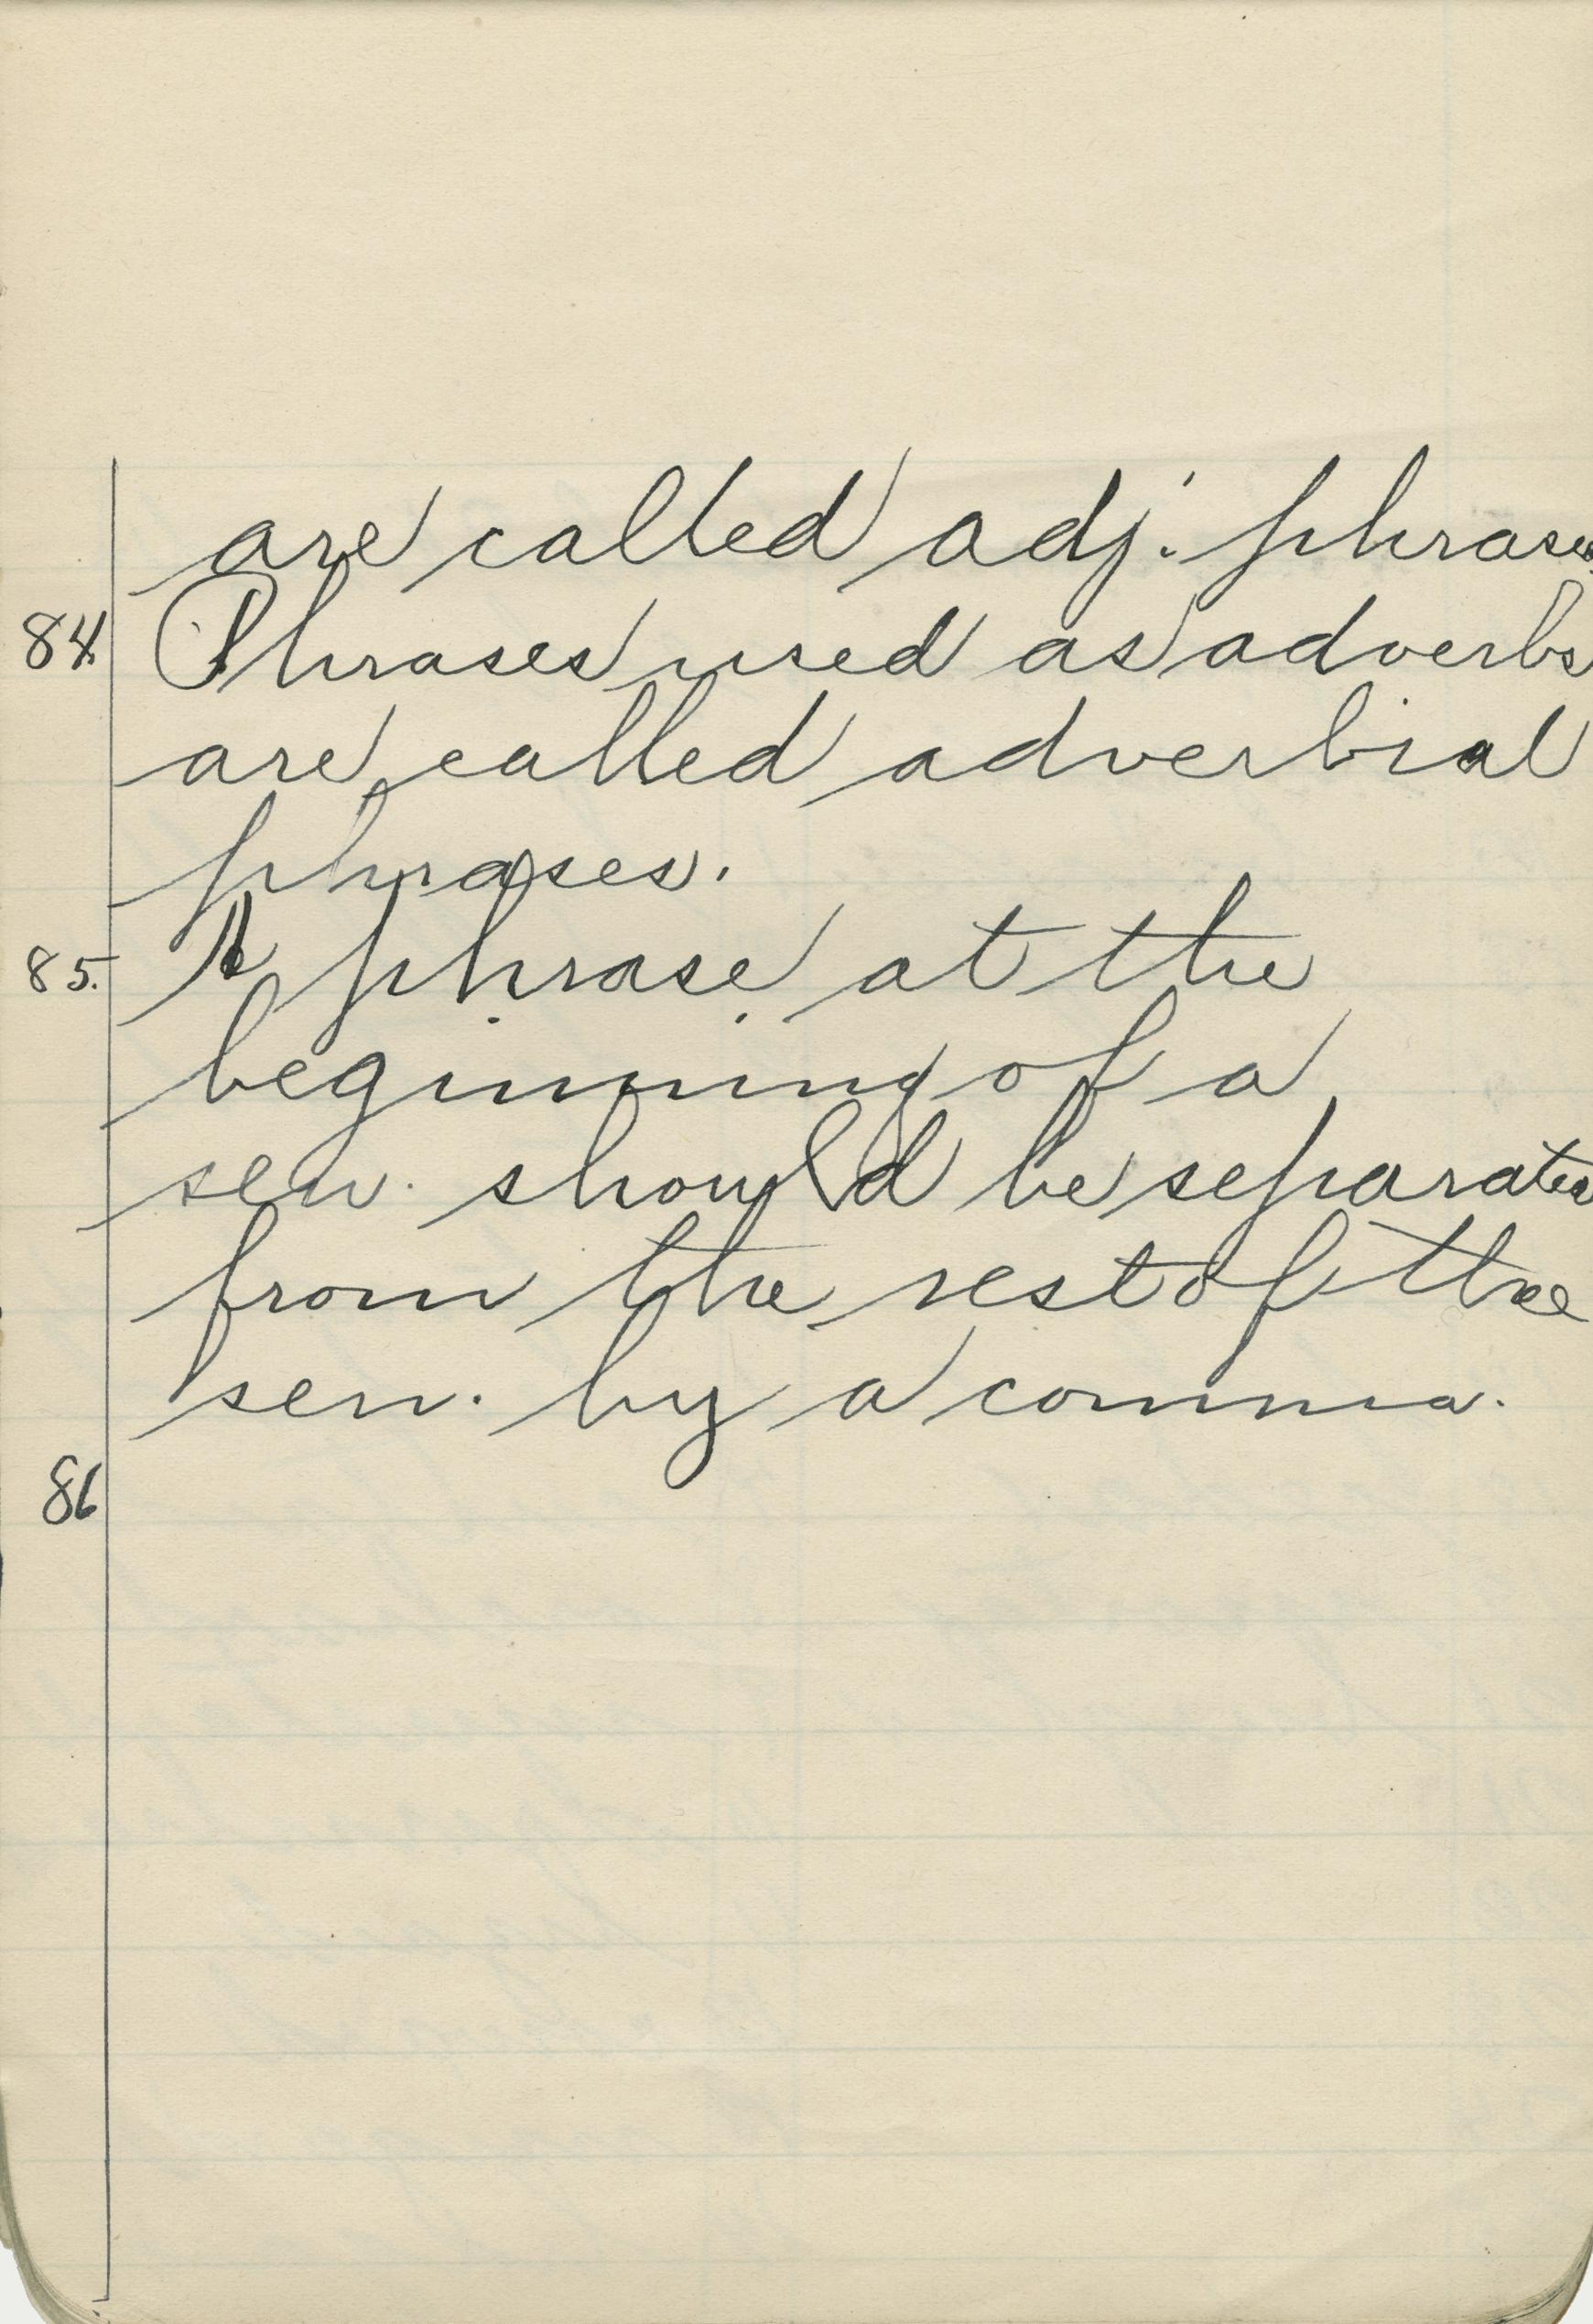 are called adj. phrases.
84. Phrases used as adverbs
are called adverbial
phrases.
85. A phrase at the
beginning of a
sen. should be separated
from the rest of the
sen. by a comma.
86